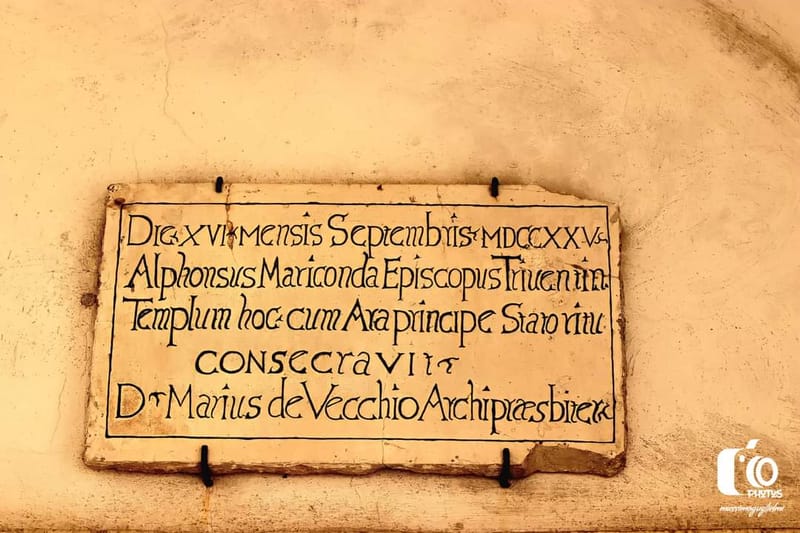 Die XVI Mensis Septembris MDCCXXV
Alphonsus Mariconda Episcopus Triuentin
Templum hoc cum Ara principe Stato ritu
CONSECRAVIT
D Marius de Vecchio Archipræsbiter
PHOTOS
massimoguglielmi